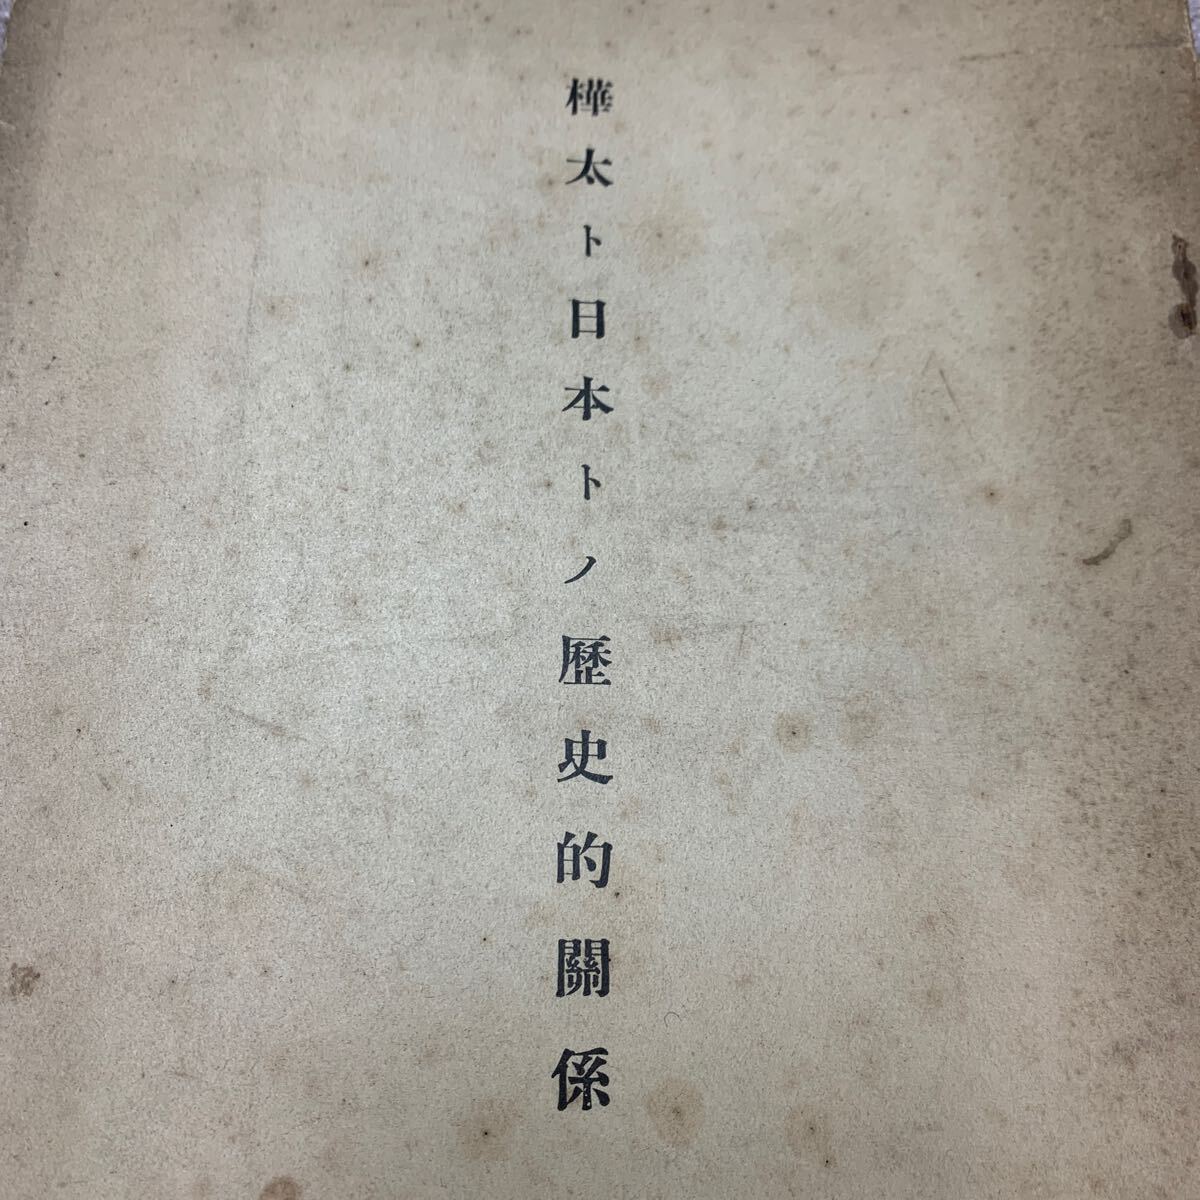 樺太ト日本トノ歴史的關係